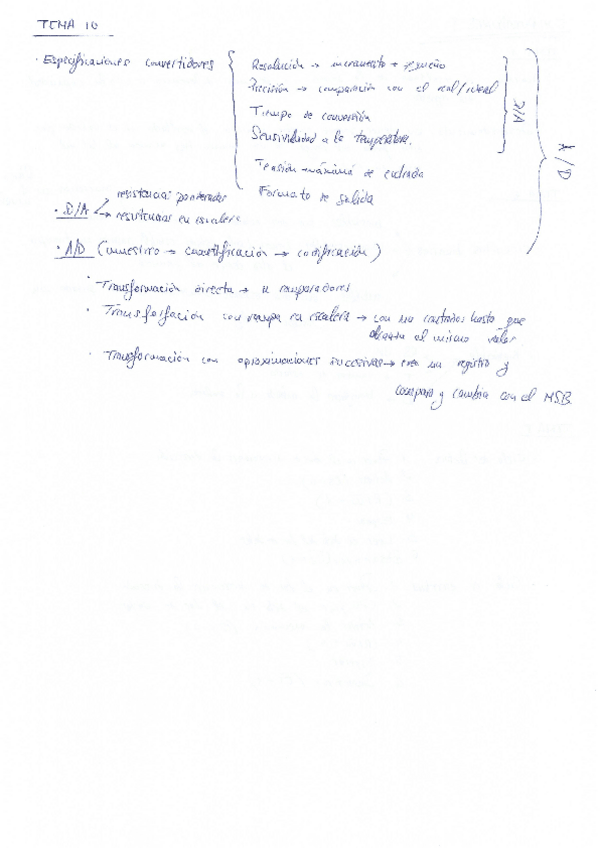 TEMA 10
· Especificaciones convertidores
Resolución → incremento + pequeño
Precisión → comparación con el real/ideal
Tiempo de conversión
Sensividad a la temperatura.
Tensión máxima de entrada
Formato de salida
D/A
A/D
· D/A
resistencias ponderadas
→ resistencias en escalera
· A/D (muestreo → cuantificación → codificación)
· Transformación directa → n comparadores
· Transformación con rampa en escalera → con un contador hasta que
alcanza el mismo valor
· Transformación con aproximaciones sucesivas → crea un registro y
compara y cambia con el MSB.